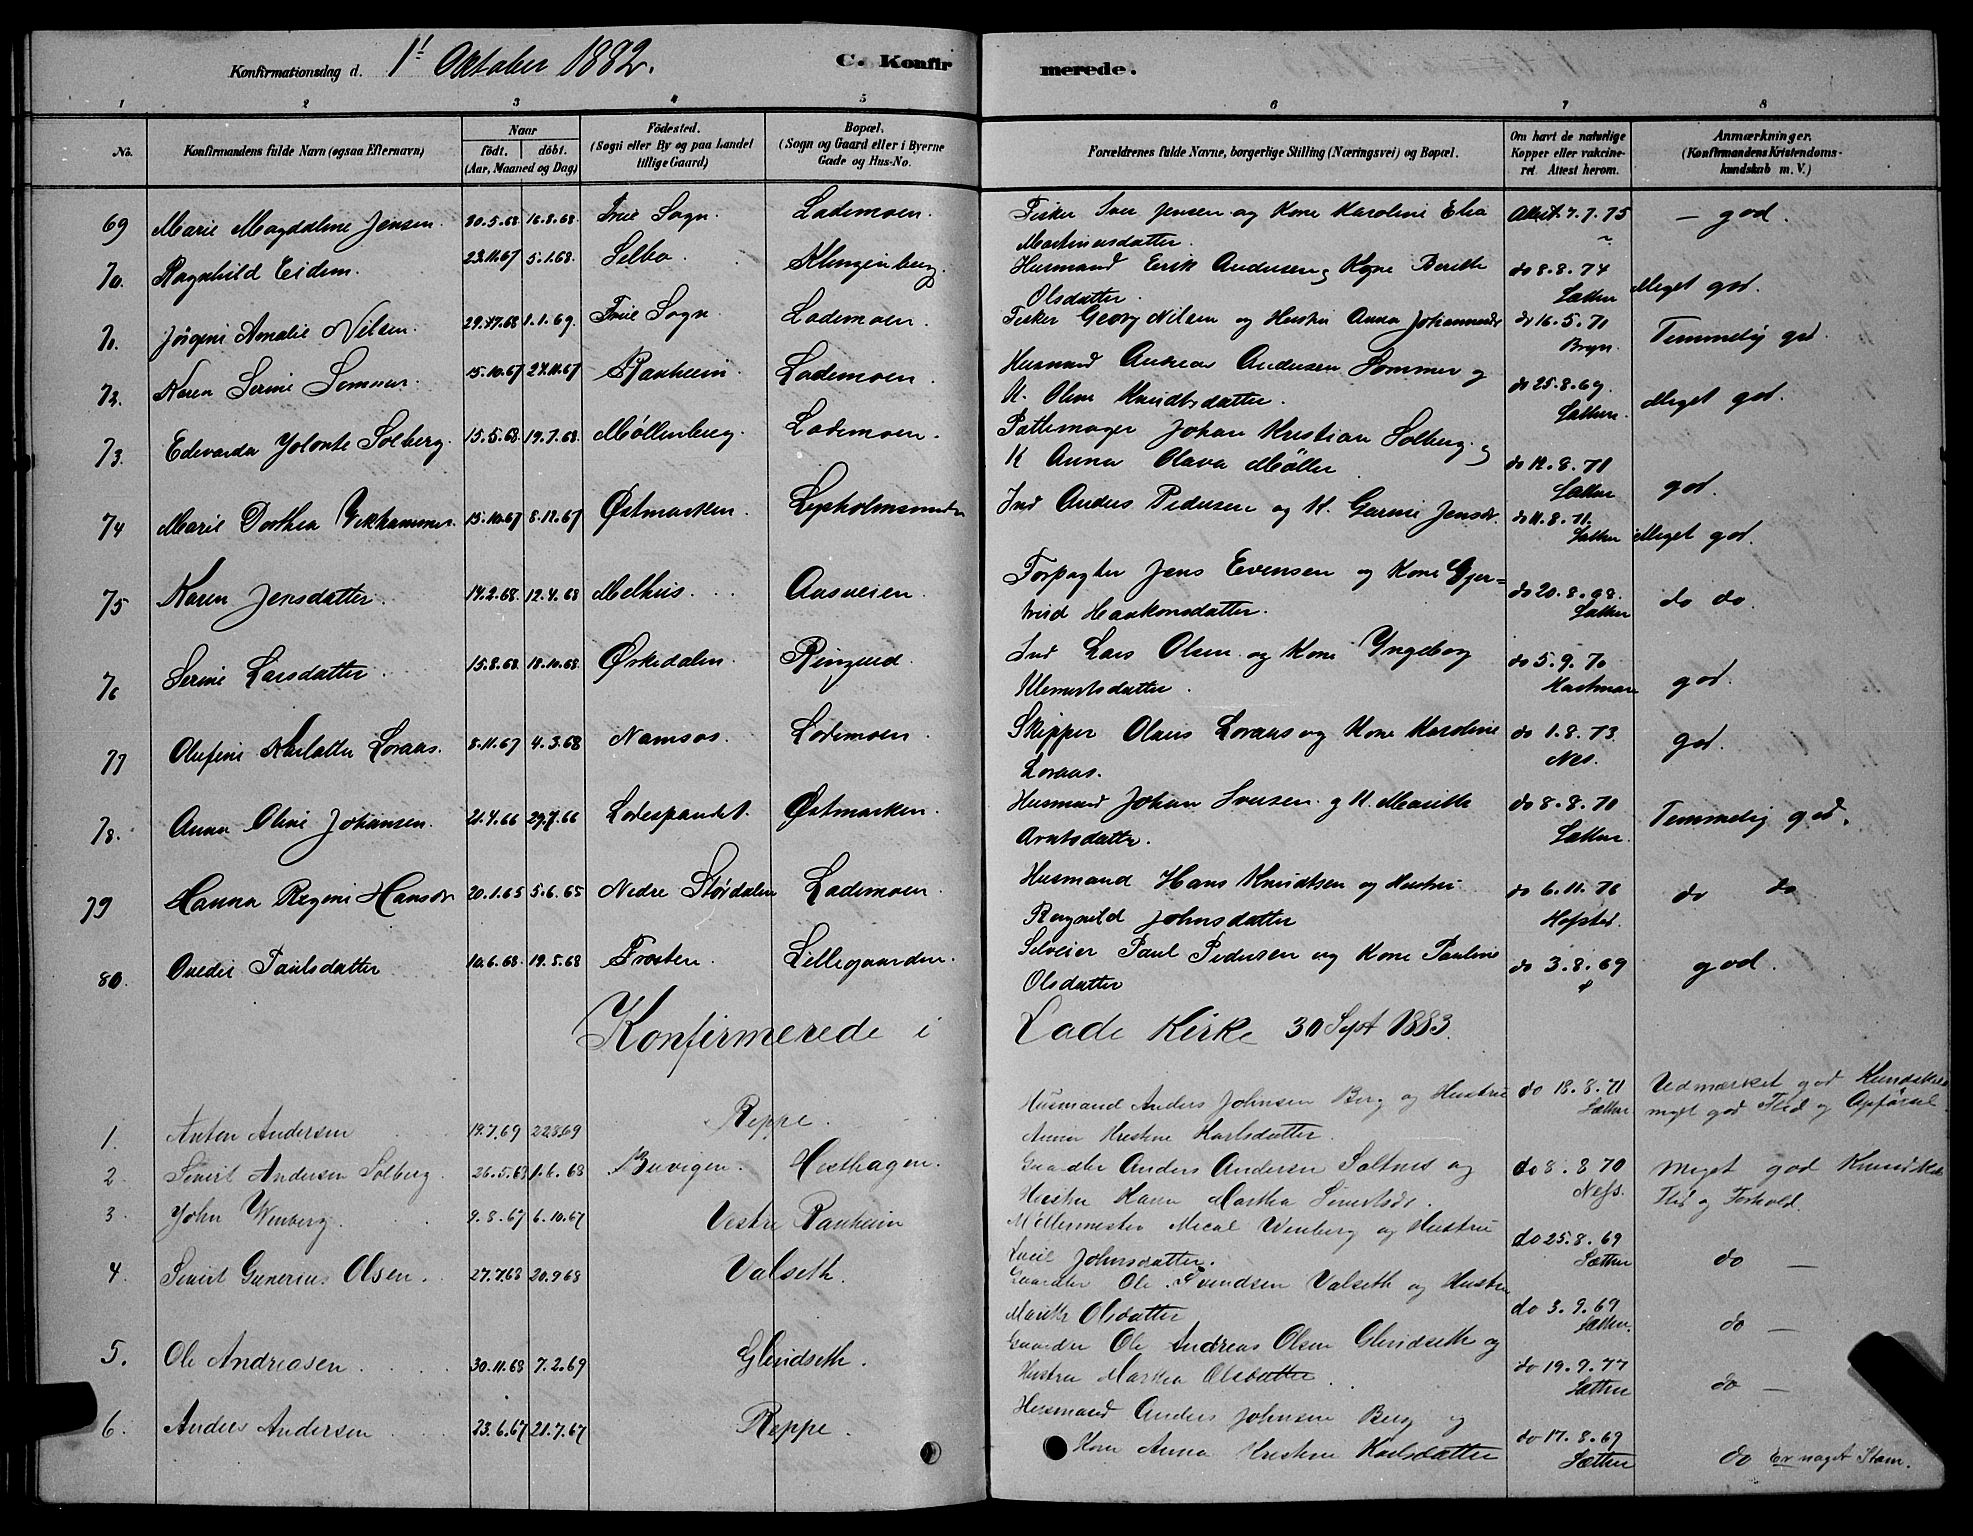 Konfirmationsdag d. 1ste October 1882. C. Konfirmerede.
1 2 3 4 5 6 7 8
No. Konfirmandens fulde Navn (ogsaa Efternavn) Naar født. døbt. (Aar, Maaned og Dag) Fødested. (Sogn eller By og paa Landet tillige Gaard) Bopæl. (Sogn og Gaard eller i Byerne Gade og Hus-No. Forældrenes fulde Navne, borgerlige Stilling (Næringsvei) og Bopæl. Om havt de naturlige Kopper eller vakcineret. Attest herom. Anmærkninger. (Konfirmandens Kristendomskundskab m. V.)
69 Marie Magdalene Jensen 20.5.68 16.8.68 Frue Sogn. Lademoen. Fisker Iver Jensen og Kone Karoline Elia Attest. 7.7.75 — god.
Martinusdatter.
70. Ragnhild Eidem. 23.11.67 5.1.68. Selbo. Klingenberg. Husmand Erik Andersen og Kone Berethe do 8.8.74 Meget god.
Olsdatter. Sætter
71. Jørgine Amalie Nilsen 1.1.69. Frue Sogn Lademoen. Fisker Georg Nilsen og Hustru Anna Johannesdr do 16.5.71 Temmelig god.
Bryn.
72. Karen Serine Sommer. 15.10.67 Ranheim. Lademoen. Husmand Andreas Andersen Sommer og do 25.8.69. Meget god.
K. Oline Knudtsdatter. Sætter.
73. Edevarda Jolonte Solberg. 15.5.68. 19.7.68. Møllenberg. Lademoen. Pottemager Johan Kristian Solberg og
K Anna Olava Møller do 12.8.71 Sætter god.
74 Marie Dorthea Vikhammer. 15.10.67 8.12.67 Østmarken. Ind Anders Pedersen og K. Gurine Jensdr. do 11.8.71. Sætter Meget god.
75 Karen Jensdatter. 14.2.68. 12.4.68 Melhus. Aasveien. Forpagter Jens Evensen og Kone Gjer=
trud Haakonsdatter. do 20.8.68. Sætter do do.
76 Serine Larsdatter. 15.8.68 18.10.68. Ørkedalen. Ringved. Ind Lars Olsen og Kone Yngeborg do 5.9.70 god.
Klemetsdatter. Hartman
77 Olufine Loraas. 8.11.67 4.3.68 Namsos. Lademoen. Skipper Olaus Loraas og Kone Karoline do 1.8.73. god.
Loraas. Nes.
78. Anna Oline Johansen. 21.4.66 29.7.66 Østmarken. Husmand Johan Iversen og K. Marith do 8.8.70 Temmelig god.
Arntsdatter. Sætter.
79 Hanna Regine Hansdr 20.1.65 5.6.65 Nedre Størdalen Lademoen. Husmand Hans Knudtsen og Hustru do 6.11.76 do do
Ragnild Johnsdatter Hofstad.
80. Ovedie Paulsdatter 19.5.68 Frosten. Lillegaarden. Selveier Paul Pedersen og Kone Pauline do 3.8.69 god.
Olsdatter
Konfirmerede i Lade Kirke 30 Sept 1883.
1. Anton Andersen 19.7.69 22.8.69 Reppe. Husmand Anders Johnsen Berg og Hustru do 18.8.71 Udmærket god Kundskab
Anna Kristine Karlsdatter. Sætter meget god Flid og Opførsel.
2 Sivert Andersen Solberg. 26.5.68 1.6.68 Buvigen. Hesthagen. Gaardbr Anders Andersen Saltnes og do 8.8.70 Meget god Kundskab
Hustru Karen Martha Sivertsdr. Næss. Flid og Forhold.
3 John Wenberg. 9.8.67 6.10.67 Vestre Ranheim Møllermester Mical Wenberg og Hustru do 25.8.69
Lucie Johnsdatter. Sætter do —
4 Sivert Gunerius Olsen. 27.7.68 20.9.68 Valseth. Gaardbr Ole Svendsen Valseth og Hustru do 3.9.69
Marithe Olsdatter Sætter. do —
5. Ole Andreasen 30.11.68 7.2.69 Glendseth. Gaardbr Ole Andreas Olsen Glendseth og do 19.9.77
Hustru Martha Olsdatter. Sætter do —
6. Anders Andersen 23.6.67 21.7.67 Reppe. Husmand Anders Johnsen Berg og do 17.8.69
Kone Anna Kristine Karlsdatter Sætter do Er noget Stam.